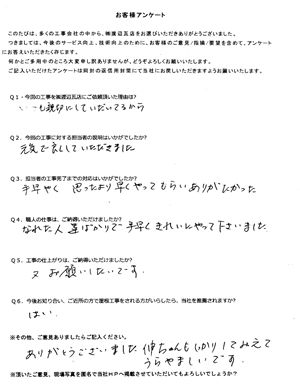 お客様アンケート
このたびは、多くの工事会社の中から、㈱渡辺瓦店をお選びいただきありがとうございました。
つきましては、今後のサービス向上、技術向上のために、お客様のご意見/指摘/要望を含めて、アンケート
にお答えいただきたく存じます。
何かとご多用中のところ大変申し訳ありませんが、どうぞよろしくお願いいたします。
ご記入いただけたアンケートは同封の返信用封筒にて当社にお戻しいただきますようお願いいたします。
Q1・今回の工事を㈱渡辺瓦店にご依頼頂いた理由は?
いつも親切にしていただいてるから
Q2．今回の工事に対する担当者の説明はいかがでしたか?
元気で良くしていただきました
Q3．担当者の工事完了までの対応はいかがでしたか?
手早やく 思ったより早くやってもらいありがたかった
Q4．職人の仕事は、ご納得いただけましたか?
なれた人達ばかりで手早くきれいにやって下さいました
Q5．工事の仕上がりは、ご納得いただけましたか?
又お願いしたいです．
Q6．今後お知り合い、ご近所の方で屋根工事をされる方がいらしたら、当社を推薦されますか?
はい．
※その他、ご意見ありましたらご記入ください。
ありがとうございました 伸ちゃんもしっかりしてみえて
うらやましいです．
※頂いたご意見、現場写真を匿名で当社HPへ掲載させていただいてもよろしいでしょうか?